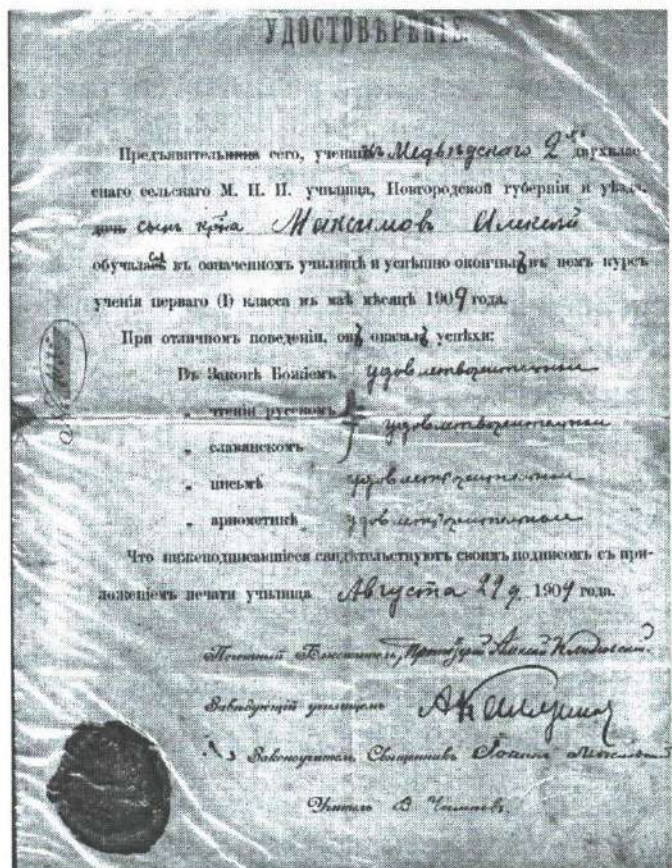 УДОСТОВѢРЕНІЕ.
Предъявитель сего, ученикъ Медвѣдскаго 2го двухклас-
снаго сельскаго М. Н. П. училища, Новгородской губерніи и уѣзда,
сынъ кр-на Максимов Алексѣй
обучался въ означенномъ училищѣ и успѣшно окончилъ въ немъ курсъ
ученія перваго (I) класса въ маѣ мѣсяцѣ 1909 года.
При отличномъ поведеніи, онъ оказалъ успѣхи:
Въ Законѣ Божіемъ удовлетворительные
„ чтеніи русскомъ
удовлетворительные
„ славянскомъ
„ письмѣ удовлетворительные
„ ариѳметикѣ удовлетворительные
Что нижеподписавшіеся свидѣтельствуютъ своимъ подписомъ съ при-
ложеніемъ печати училища Августа 29 д. 1909 года.
Почетный Блюститель, Протоіерей
Завѣдующій училищемъ
Законоучитель, Священникъ Іоаннъ
Учитель В.